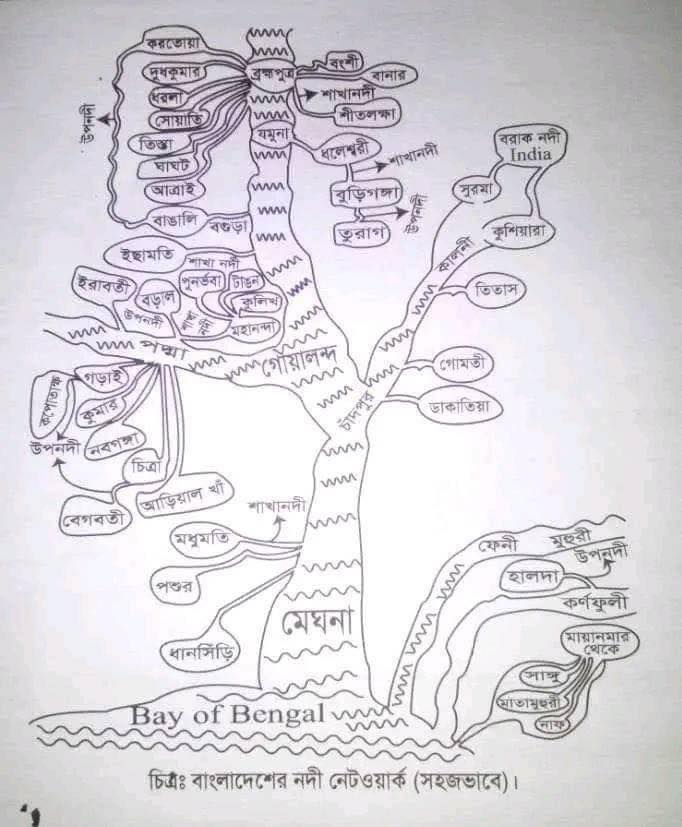 করতোয়া
দুধকুমার
ধরলা
সোয়াতি
তিস্তা
ঘাঘট
আত্রাই
উপনদী
ব্রহ্মপুত্র
বংশী
বানার
শাখানদী
শীতলক্ষা
যমুনা
ধলেশ্বরী
শাখানদী
বুড়িগঙ্গা
তুরাগ
উপনদী
বরাক নদী
India
সুরমা
কুশিয়ারা
কালনী
তিতাস
গোমতী
ডাকাতিয়া
চাঁদপুর
বাঙালি
বগুড়া
ইছামতি
শাখা নদী
ইরাবতী
বড়াল
উপনদী
পুনর্ভবা
টাঙন
কুলিখ
শাখা
নদী
মহানন্দা
পদ্মা
গোয়ালন্দ
গড়াই
কপোতাক্ষ
কুমার
উপনদী
নবগঙ্গা
চিত্রা
বেগবতী
আড়িয়াল খাঁ
শাখানদী
মধুমতি
পশুর
ধানসিঁড়ি
মেঘনা
ফেনী
মুহুরী
উপনদী
হালদা
কর্ণফুলী
মায়ানমার
থেকে
সাঙ্গু
মাতামুহুরী
নাফ
Bay of Bengal
চিত্রঃ বাংলাদেশের নদী নেটওয়ার্ক (সহজভাবে)।